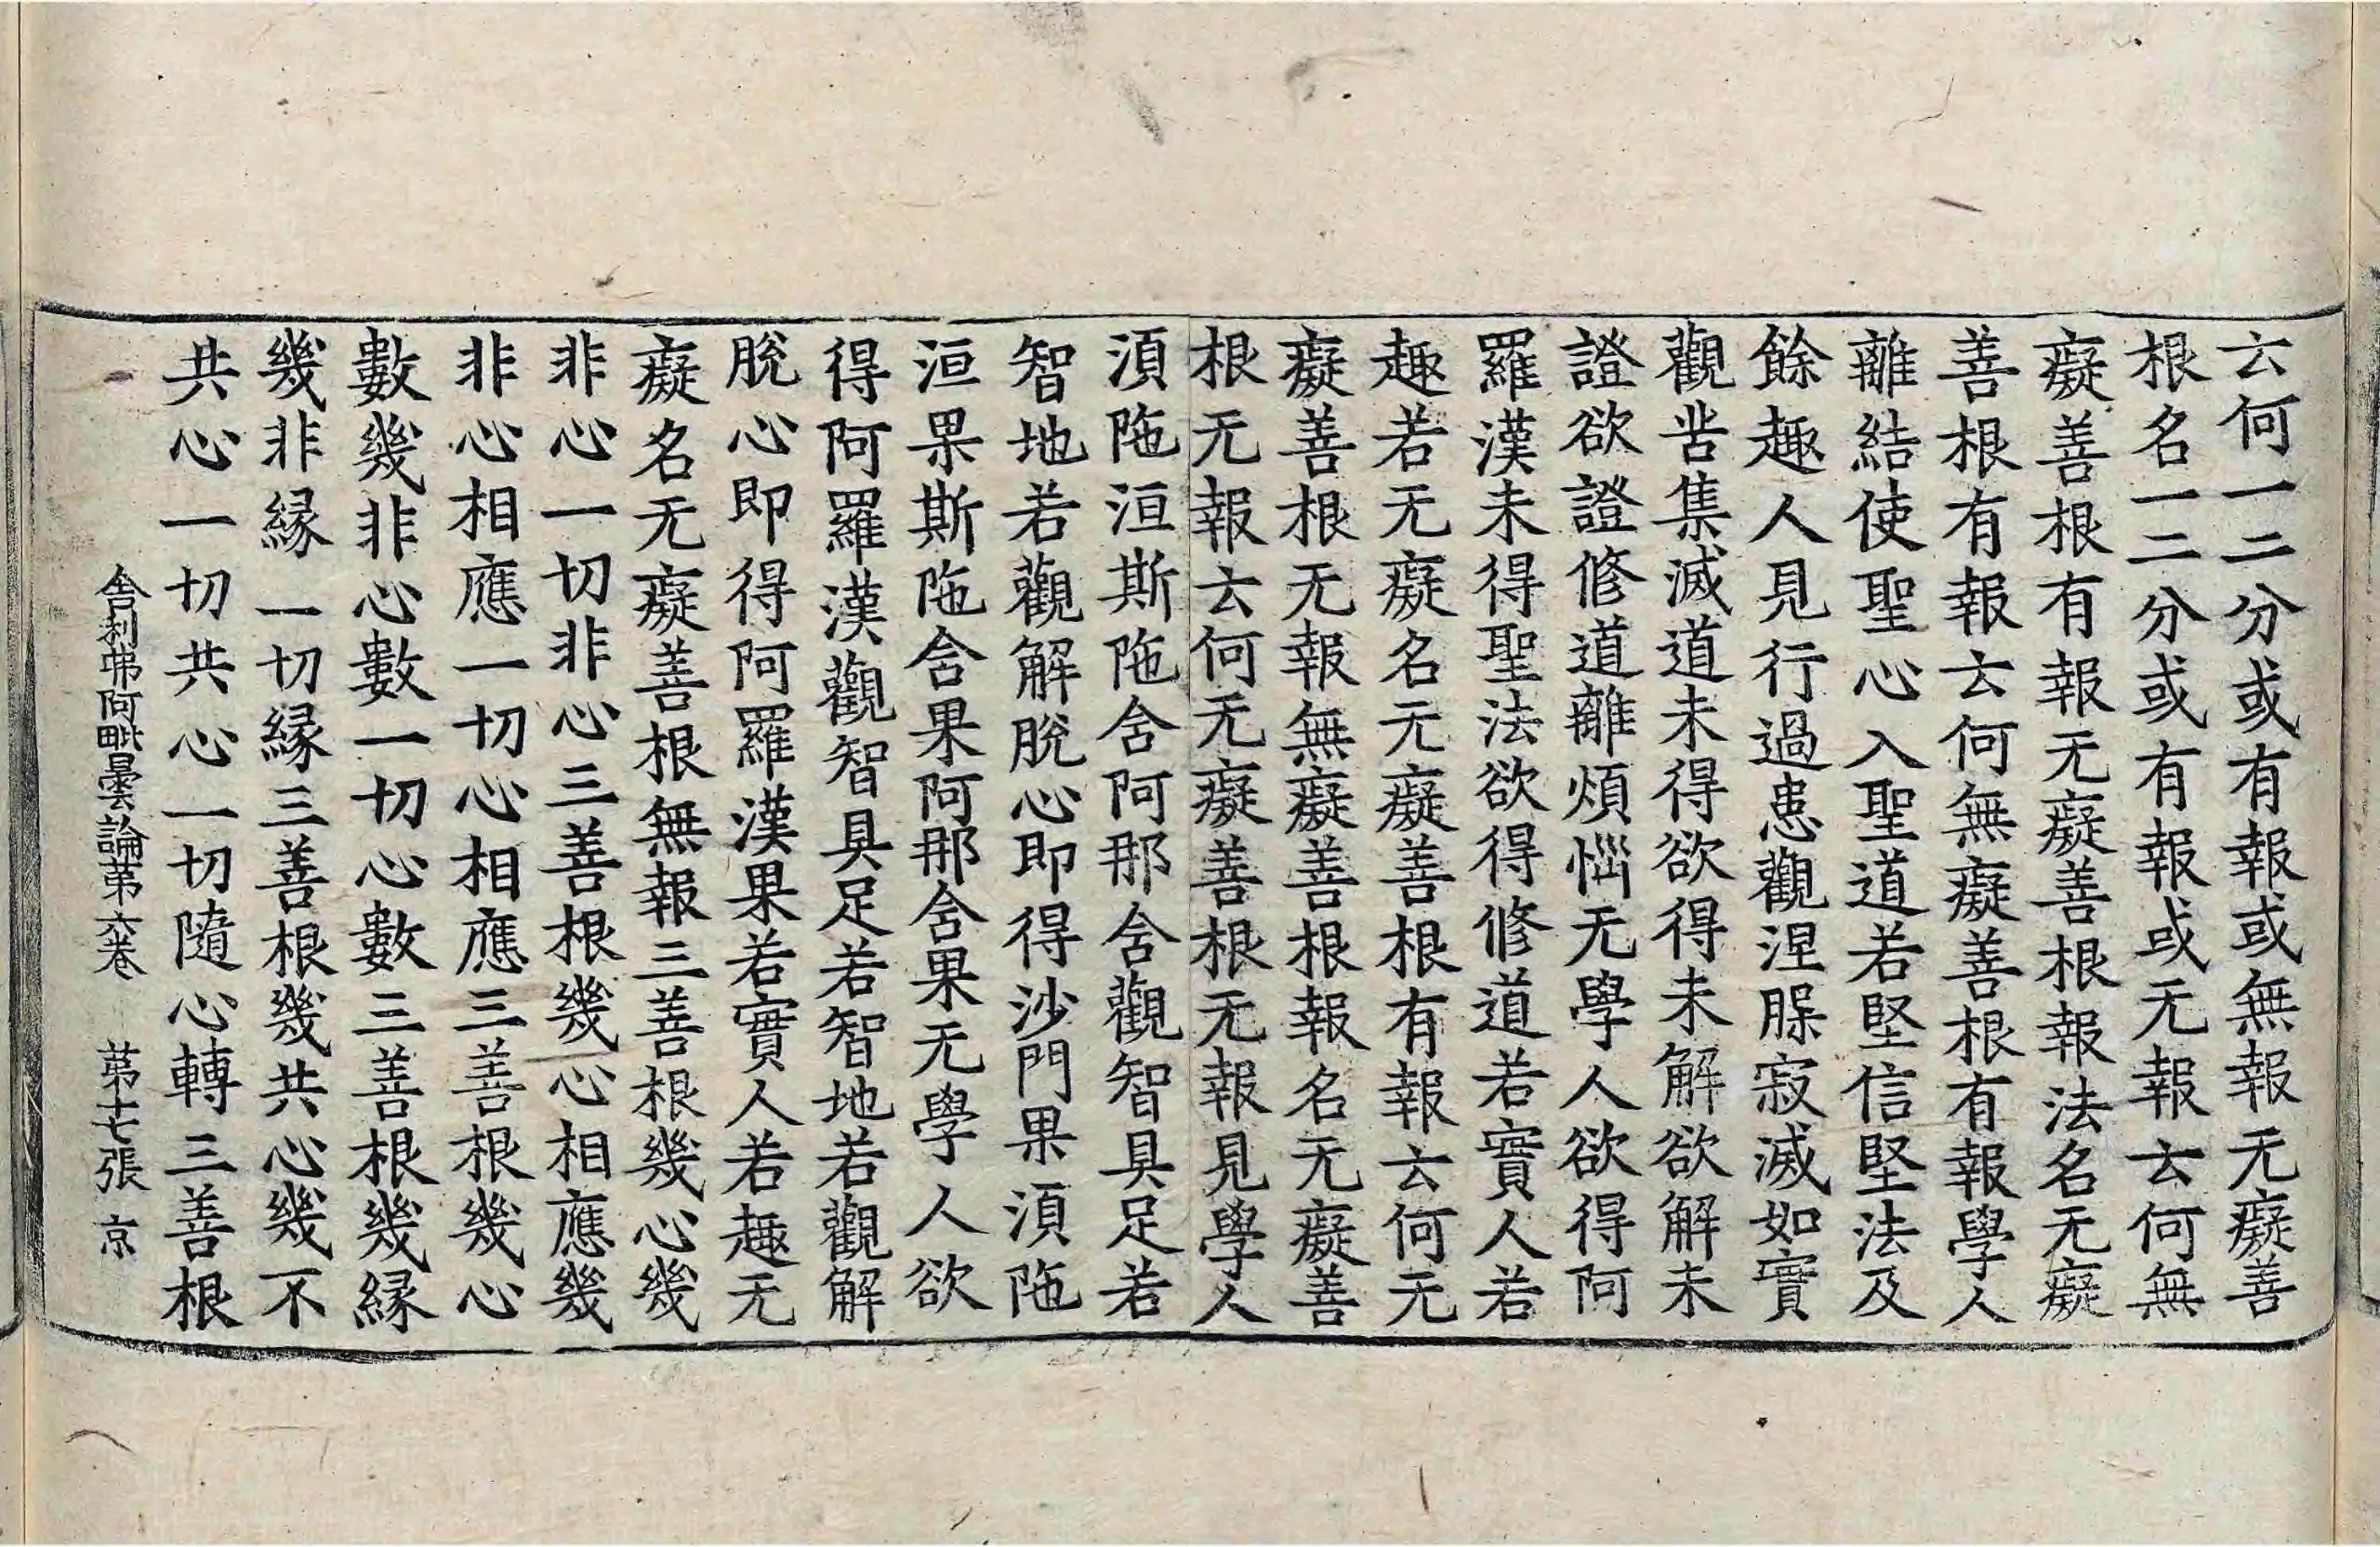 云何一二分或有報或無報无癡善
根名一二分或有報或无報云何無
癡善根有報无癡善根報法名无癡
善根有報云何無癡善根有報學人
離結使聖心入聖道若堅信堅法及
餘趣人見行過患觀涅槃寂滅如實
觀苦集滅道未得欲得未解欲解未
證欲證修道離煩惱无學人欲得阿
羅漢未得聖法欲得修道若實人若
趣若无癡名无癡善根有報云何无
癡善根无報無癡善根報名无癡善
根无報云何无癡善根无報見學人
湏陁洹斯陁舍阿那舍觀智具足若
智地若觀解脫心即得沙門果湏陁
洹果斯陁舍果阿那舍果无學人欲
得阿羅漢觀智具足若智地若觀解
脫心即得阿羅漢果若實人若趣无
癡名无癡善根無報三善根幾心幾
非心一切非心三善根幾心相應幾
非心相應一切心相應三善根幾心
數幾非心數一切心數三善根幾緣
幾非緣一切緣三善根幾共心幾不
共心一切共心一切隨心轉三善根
舍利弗阿毗曇論第六卷　第十七張　京